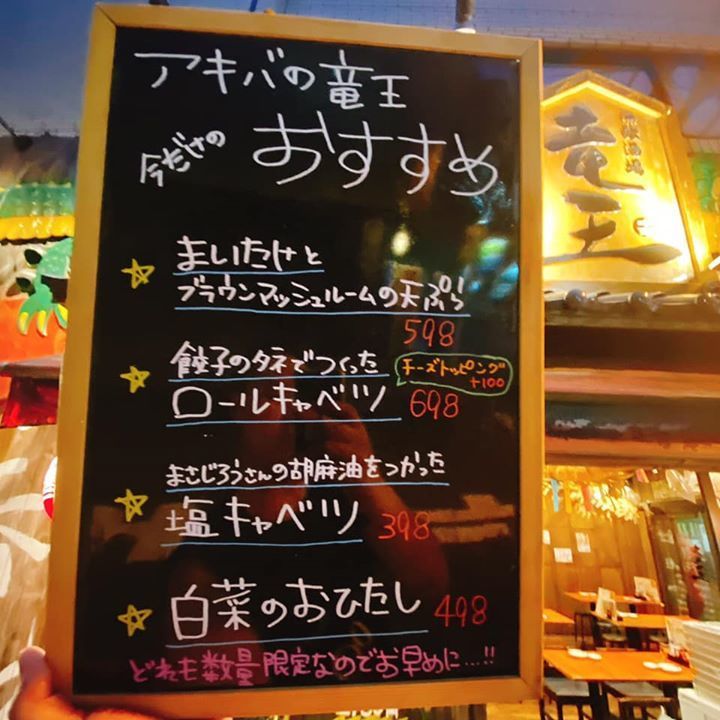 アキバの竜王
今だけの
おすすめ
まいたけと
ブラウンマッシュルームの天ぷら
598
餃子のタネでつくった
チーズトッピング
+100
ロールキャベツ 698
まさじろうさんの胡麻油をつかった
塩キャベツ 398
白菜のおひたし 498
どれも数量限定なのでお早めに…!!
竜王